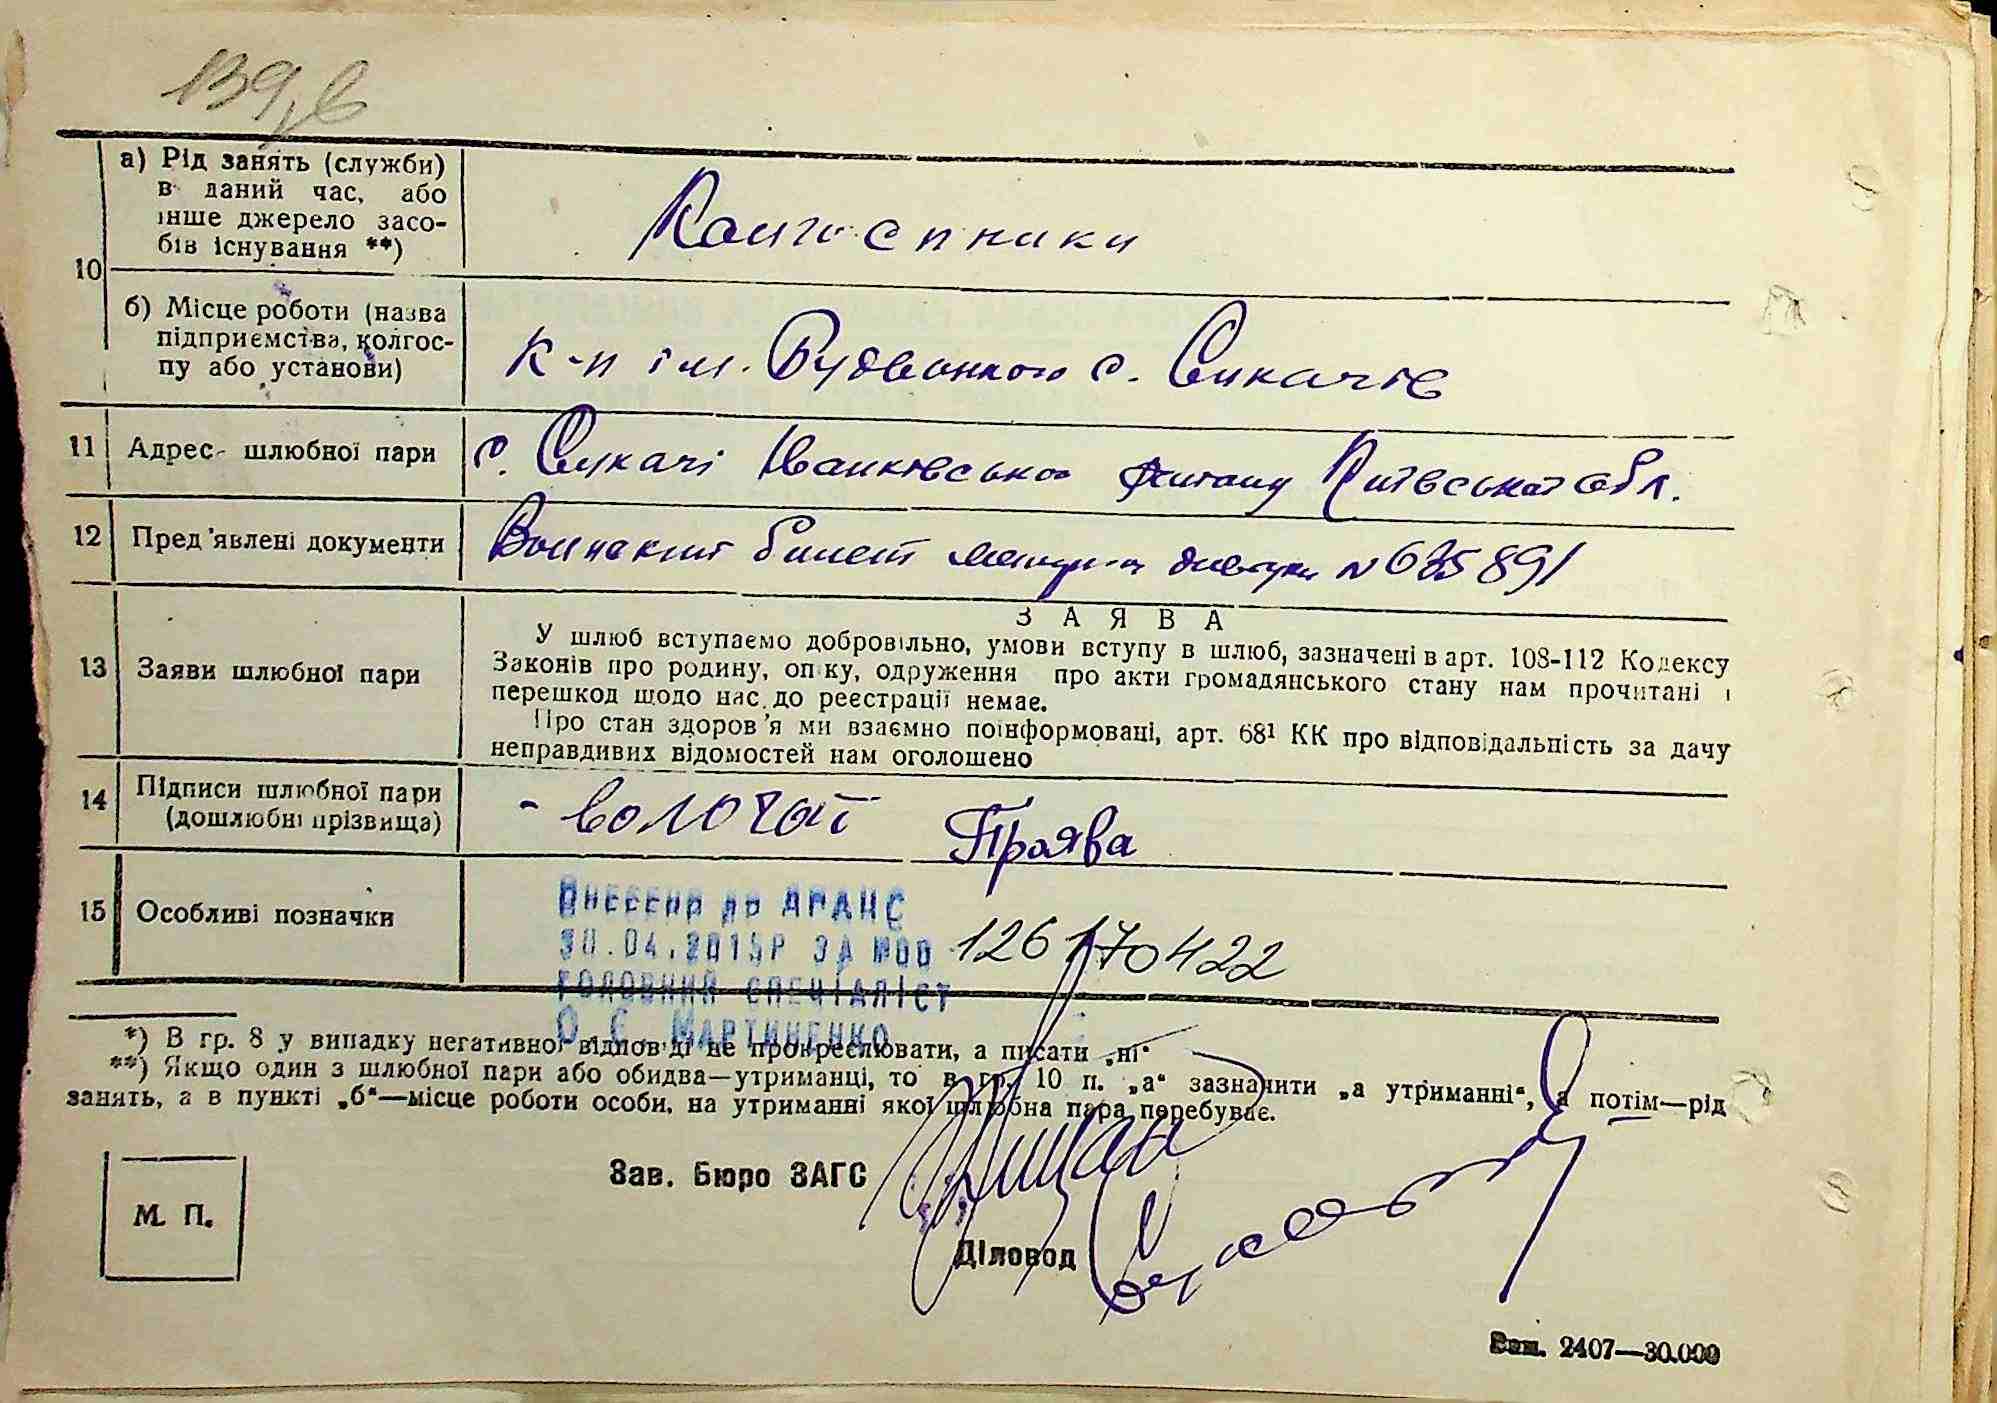 139,в
10
а) Рід занять (служби)
в даний час, або
інше джерело засо-
бів існування **)
Колгоспники
б) Місце роботи (назва
підприємства, колгос-
пу або установи)
к-п ім. Будьонного с. Сукачів
11 Адрес шлюбної пари
с. Сукачі Іванківського району Київської обл.
12 Пред'явлені документи
білет № 635891
13 Заяви шлюбної пари
ЗАЯВА
У шлюб вступаємо добровільно, умови вступу в шлюб, зазначені в арт. 108-112 Кодексу
Законів про родину, опіку, одруження про акти громадянського стану нам прочитані і
перешкод щодо нас до реєстрації немає.
Про стан здоров'я ми взаємно поінформовані, арт. 68¹ КК про відповідальність за дачу
неправдивих відомостей нам оголошено
14 Підписи шлюбної пари
(дошлюбні прізвища)
- Волочай Проява
15 Особливі позначки
Внесено до ДРАЦС
30.04.2015р за №00 126170422
Головний спеціаліст
О.С. Мартиненко
*) В гр. 8 у випадку негативної відповіді не прокреслювати, а писати „ні“
**) Якщо один з шлюбної пари або обидва—утриманці, то в гр. 10 п. „а“ зазначити „а утриманні“, а потім—рід
занять, а в пункті „б“—місце роботи особи, на утриманні якої шлюбна пара перебуває.
М. П.
Зав. Бюро ЗАГС
Діловод
Зам. 2407—30.000